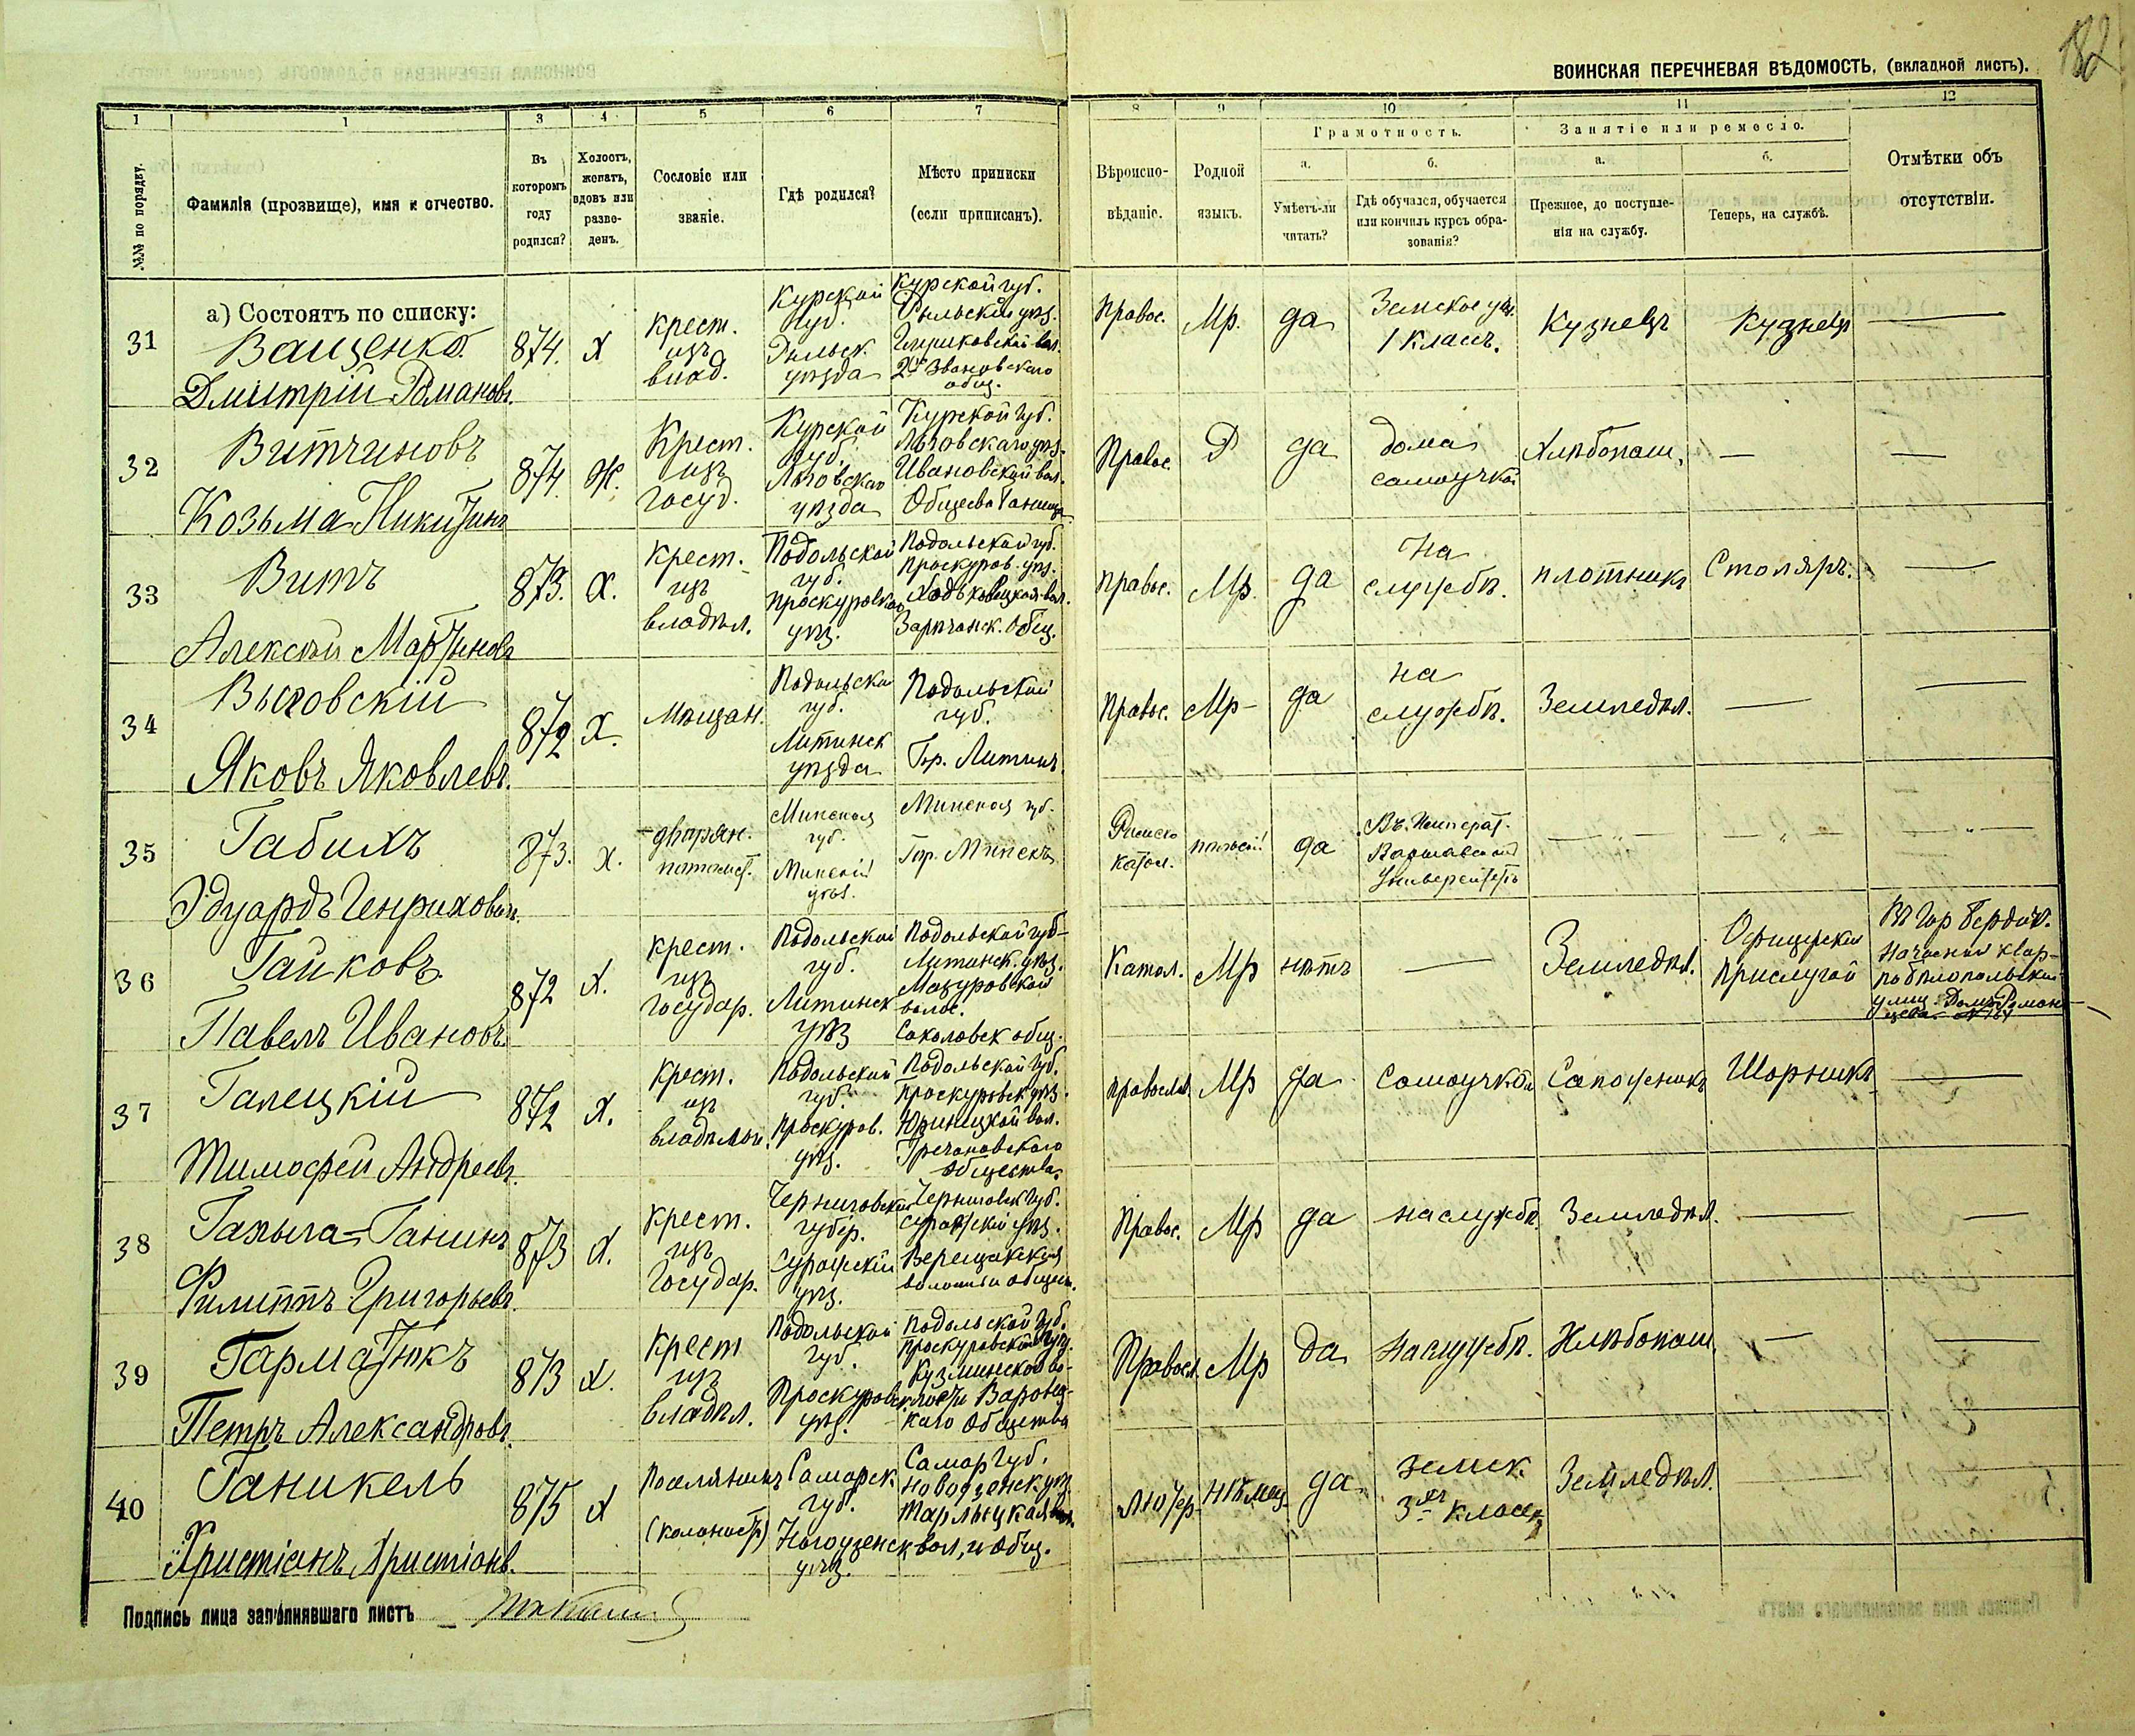 182
ВОИНСКАЯ ПЕРЕЧНЕВАЯ ВѢДОМОСТЬ, (вкладной листъ).
1 1 3 4 5 6 7 8 9 10 11 12
№№ по порядку.
Фамилія (прозвище), имя и отчество.
Въ которомъ году родился?
Холостъ, женатъ, вдовъ или разве- денъ.
Сословіе или званіе.
Гдѣ родился?
Мѣсто приписки (если приписанъ).
Вѣроиспо- вѣданіе.
Родной языкъ.
Грамотность.
а.
Умѣетъ-ли читать?
б.
Гдѣ обучался, обучается или кончилъ курсъ обра- зованія?
Занятіе или ремесло.
а.
Прежнее, до поступле- нія на службу.
б.
Теперь, на службѣ.
Отмѣтки объ отсутствіи.
а) Состоятъ по списку:
31
Ващенко
Дмитрій Романовъ.
874.
Х
Крест.
изъ
влад.
Курской
губ.
Рыльск.
уѣзда
Курской губ.
Рыльскій уѣз.
общ.
Правос.
Мр.
да
Земское уч.
1 классъ.
Кузнецъ
Кузнецъ
—
32
Витчиновъ
Козьма Никитинъ
874.
Ж.
Крест.
изъ
госуд.
Курской
губ.
Льговскаго
уѣзда
Курской губ.
Льговскаго уѣз.
Ивановской вол.
Правос.
Р
да
дома
самоучкой
Хлѣбопаш.
—
—
33
Витъ
Алексѣй Мартыновъ
873.
Х.
Крест.
изъ
владѣл.
Подольской
губ.
Проскуровскаго
уѣз.
Подольской губ.
Проскуров. уѣз.
Зарѣчанск. Общ.
Правос.
Мр.
да
На
службѣ.
плотникъ
Столяръ.
—
34
Выговскій
Яковъ Яковлевъ.
872
Х.
Мѣщан.
Подольской
губ.
Литинск
уѣзда
Подольской
губ.
Гор. Литинъ.
Правос.
Мр-
да
на
службѣ.
Земледѣл.
—
—
35
Габихъ
Эдуардъ Генриховичъ.
873.
х.
дворян.
потомст.
Минская
губ.
Минскій
уѣз.
Минская губ.
Гор. Минскъ
Римско
катол.
польскій
да
Въ Императ.
Варшавскій
Университетъ
— „ —
— „ —
— „ —
36
Гайковъ
Павелъ Ивановъ.
872
Х.
крест.
изъ
государ.
Подольской
губ.
Литинск
уѣз
Подольской губ-
Литинск. уѣз.
Мазуровской
волос.
Соколовск общ.
Катол.
Мр
нѣтъ
—
Земледѣл.
Офицерской
прислугой
Въ гор Бердич.
37
Галецкій
Тимофей Андреевъ.
872
Х.
Крест.
изъ
владѣльч.
Подольской
губ.
Проскуров.
уѣз.
Подольской Губ.
Проскуровск уѣз.
Гречановскаго
общества.
православ.
Мр
да
Самоучкой
Сапожникъ
Шорникъ
—
38
Филиппъ Григорьевъ.
873
Х.
Крест.
изъ
Государ.
Черниговской
губер.
Суражскій
уѣз.
Черниговск Губ.
Суражскій уѣз.
Правос.
Мр
да
на службѣ
Земледѣл.
—
—
39
Гарматюкъ
Петръ Александровъ.
873
Х.
Крест
изъ
владѣл.
Подольской
губ.
Проскуровск
уѣз.
Подольской Губ.
Проскуровской уѣз.
каго Общества
Правосл.
Мр
Да
На службѣ.
Хлѣбопаш.
—
—
40
Ганикель
Христіанъ Христіанов.
875
Х
Поселянинъ
(колонистъ)
Самарск.
губ.
Новоузенск
уѣз.
Самар Губ.
Новоузенск. уѣз.
вол, и Общ.
Лютер-
Нѣмец
да
земск.
3хъ класс.
Земледѣл.
Подпись лица заполнявшаго листъ